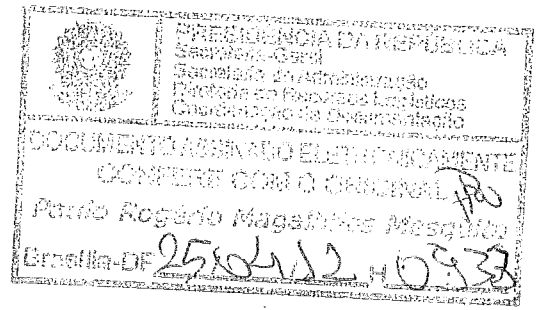 PRESIDÊNCIA DA REPÚBLICA
Secretaria-Geral
Secretaria de Administração
Diretoria de Recursos Logísticos
Coordenação de Documentação
DOCUMENTO ASSINADO ELETRONICAMENTE
CONFERE COM O ORIGINAL
Rogério Magalhães Mesquita
Brasília-DF 25/04/12 H